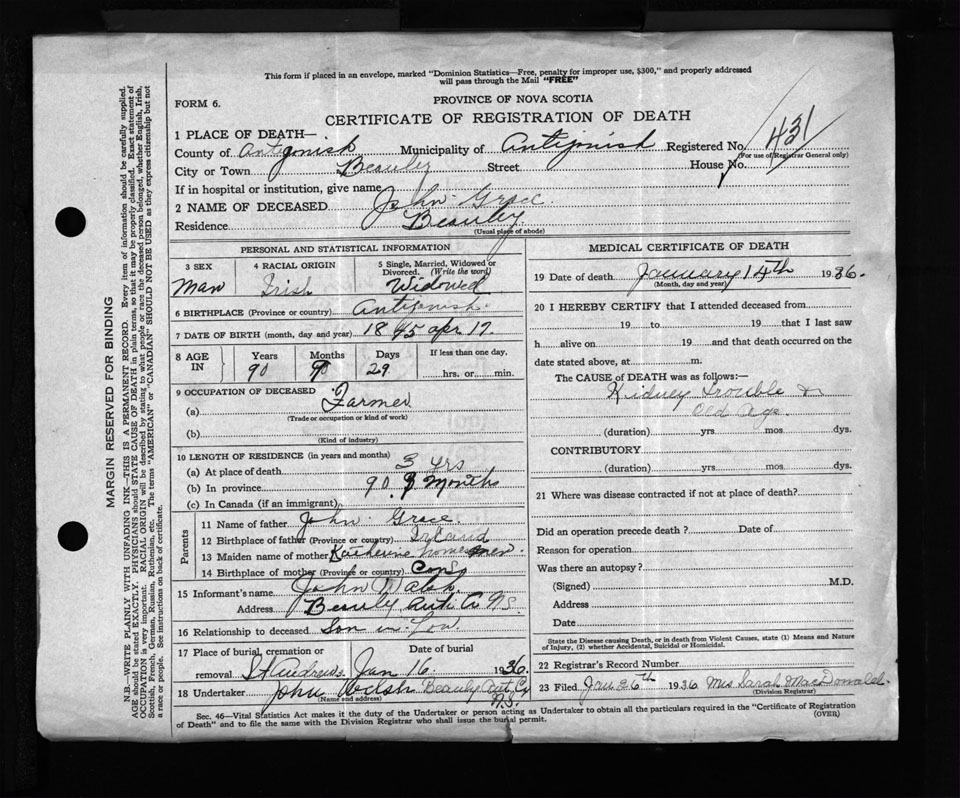 This form if placed in an envelope, marked "Dominion Statistics—Free, penalty for improper use, $300," and properly addressed
will pass through the Mail "FREE"
FORM 6.
PROVINCE OF NOVA SCOTIA
CERTIFICATE OF REGISTRATION OF DEATH
1 PLACE OF DEATH—
County of Antigonish Municipality of Antigonish Registered No. 431
(For use of Registrar General only)
City or Town Beauly Street House No.
If in hospital or institution, give name
2 NAME OF DECEASED John Grace
Residence Beauly
(Usual place of abode)
PERSONAL AND STATISTICAL INFORMATION
3 SEX 4 RACIAL ORIGIN 5 Single, Married, Widowed or Divorced. (Write the word)
Man Irish Widowed
6 BIRTHPLACE (Province or country) Antigonish
7 DATE OF BIRTH (month, day and year) 1845 apr 17
8 AGE IN Years Months Days If less than one day,
90 29 hrs. or min.
9 OCCUPATION OF DECEASED
(a) Farmer
(Trade or occupation or kind of work)
(b)
(Kind of industry)
10 LENGTH OF RESIDENCE (in years and months)
(a) At place of death 3 yrs
(b) In province 90. 9 Months
(c) In Canada (if an immigrant)
Parents
11 Name of father John Grace.
12 Birthplace of father (Province or country) Irland
13 Maiden name of mother Katherine
14 Birthplace of mother (Province or country)
15 Informant's name John Walsh
Address Beauly Ant Co NS.
16 Relationship to deceased Son in Low.
17 Place of burial, cremation or removal Date of burial
St Andrews. Jan 16 1936.
18 Undertaker John Welsh Beauly Ant. Co N.S.
(Name and address)
MEDICAL CERTIFICATE OF DEATH
19 Date of death January 14th 1936.
(Month, day and year)
20 I HEREBY CERTIFY that I attended deceased from
19 to 19 that I last saw
h alive on 19 and that death occurred on the
date stated above, at m.
The CAUSE OF DEATH was as follows:—
Kidney Trouble &
Old Age.
(duration) yrs. mos. dys.
CONTRIBUTORY
(duration) yrs. mos. dys.
21 Where was disease contracted if not at place of death?
Did an operation precede death? Date of
Reason for operation
Was there an autopsy?
(Signed) M.D.
Address
Date
State the Disease causing Death, or in death from Violent Causes, state (1) Means and Nature
of Injury, (2) whether Accidental, Suicidal or Homicidal.
22 Registrar's Record Number
23 Filed Jan 26th 1936 Mrs Sarah MacDonald.
(Division Registrar)
Sec. 46—Vital Statistics Act makes it the duty of the Undertaker or person acting as Undertaker to obtain all the particulars required in the "Certificate of Registration
of Death" and to file the same with the Division Registrar who shall issue the burial permit. (OVER)
MARGIN RESERVED FOR BINDING
N.B.—WRITE PLAINLY WITH UNFADING INK—THIS IS A PERMANENT RECORD. Every item of information should be carefully supplied.
AGE should be stated EXACTLY. PHYSICIANS should STATE CAUSE OF DEATH in plain terms, so that it may be properly classified. Exact statement of
OCCUPATION is very important. RACIAL ORIGIN will be described by stating to what people or race the deceased person belonged, whether English, Irish,
Scottish, French, German, Russian, Ruthenian, etc. The terms "AMERICAN" or "CANADIAN" SHOULD NOT BE USED as they express citizenship but not
a race or people. See instructions on back of certificate.